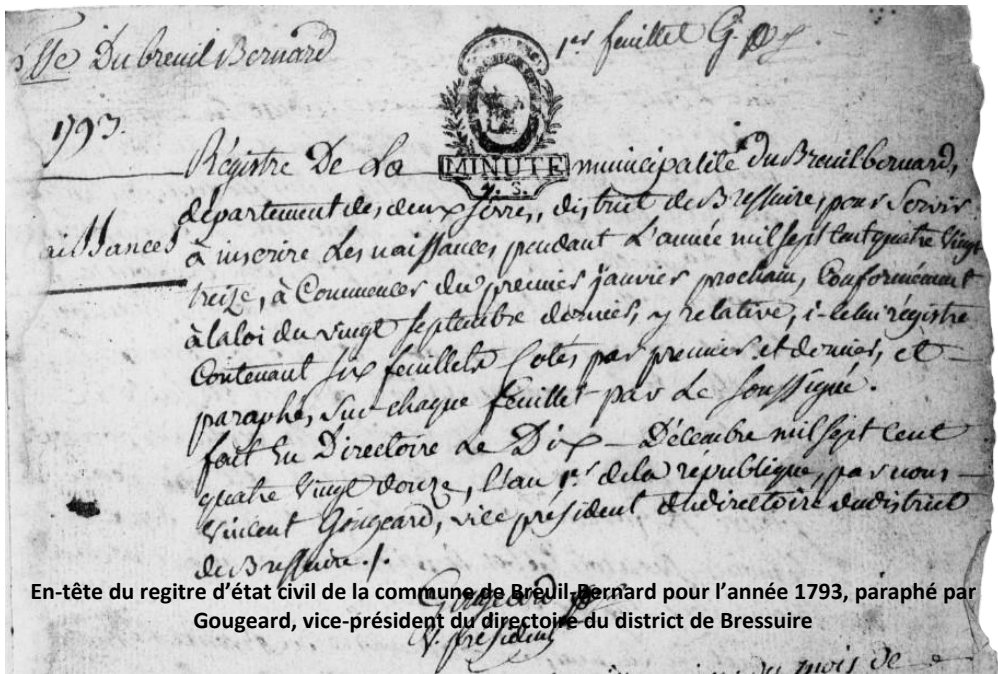 sse Du breuil Bernard
1er feuillet G.
1793.
Régistre De La municipalité du Breuil bernard,
MINUTE
département des deux sevres, district de Bressuire, pour Servir
aissances
à inscrire Les naissances pendant L'année mil sept cent quatre vingt
treize, à Commencer du premier janvier prochain, Conformément
à la loi du vingt septembre dernier, y relative, i-celui régistre
Contenant six feuillets Cotés par premier et dernier, et
paraphé, sur chaque feuillet par Le soussigné.
fait En Directoire Le Dix Décembre mil sept cent
quatre Vingt douze, L'an 1er de la république, par nous
Vincent Gougeard, vice président du directoire du district
de Bressuire ./.
Gougeard
V. président
En-tête du regitre d'état civil de la commune de Breuil-Bernard pour l'année 1793, paraphé par
Gougeard, vice-président du directoire du district de Bressuire
du mois de